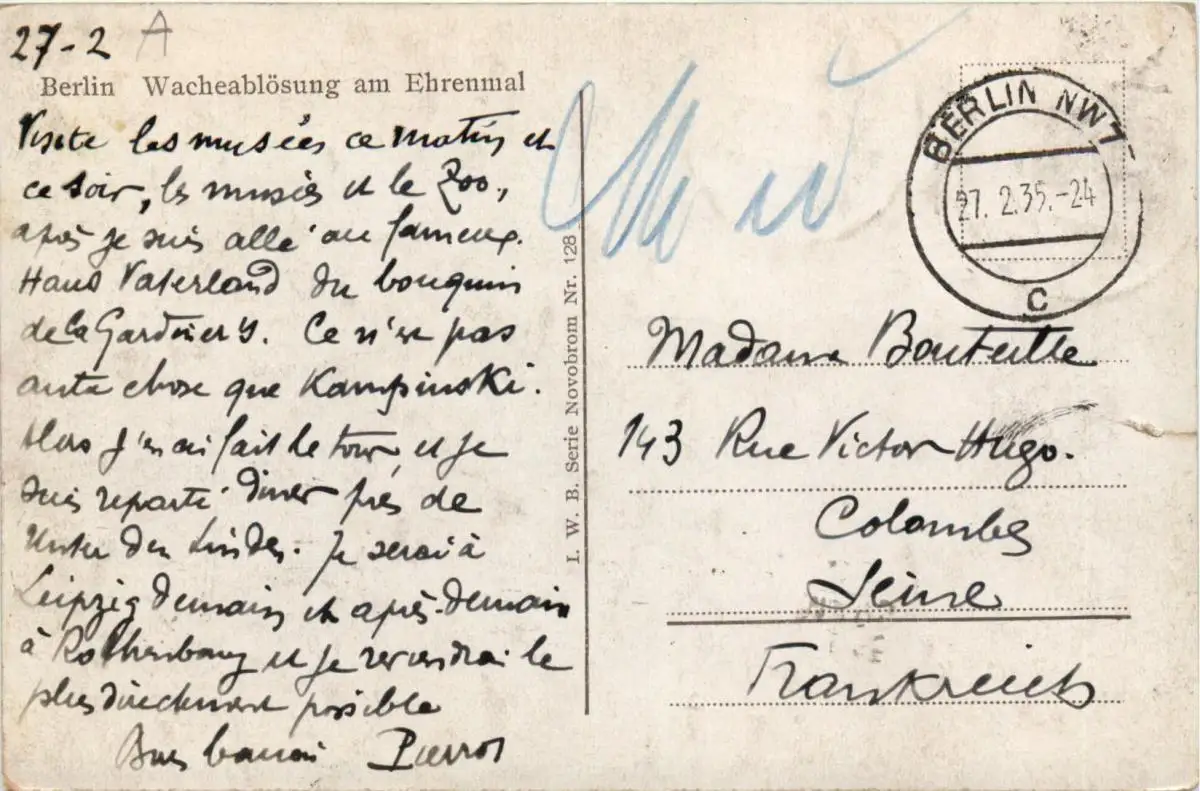 27-2 A
Berlin Wacheablösung am Ehrenmal
Visite les musées ce matin et
ce soir, les musées et le Zoo,
après je suis allé au fameux
Haus Vaterland du bouquin
de la Gardner's. Ce n'est pas
autre chose que Kampinski.
Alors j'en ai fait le tour, et je
suis reparti diner près de
Unter den Linden. Je serai à
Leipzig demain et après-demain
à Rothenbourg et je reviendrai le
plus directement possible
Pierrot
I. W. B. Serie Novobrom Nr. 128
BERLIN NW 7
27. 2.35.-24
C
Madame
143 Rue Victor Hugo.
Colombes
Seine
Frankreich